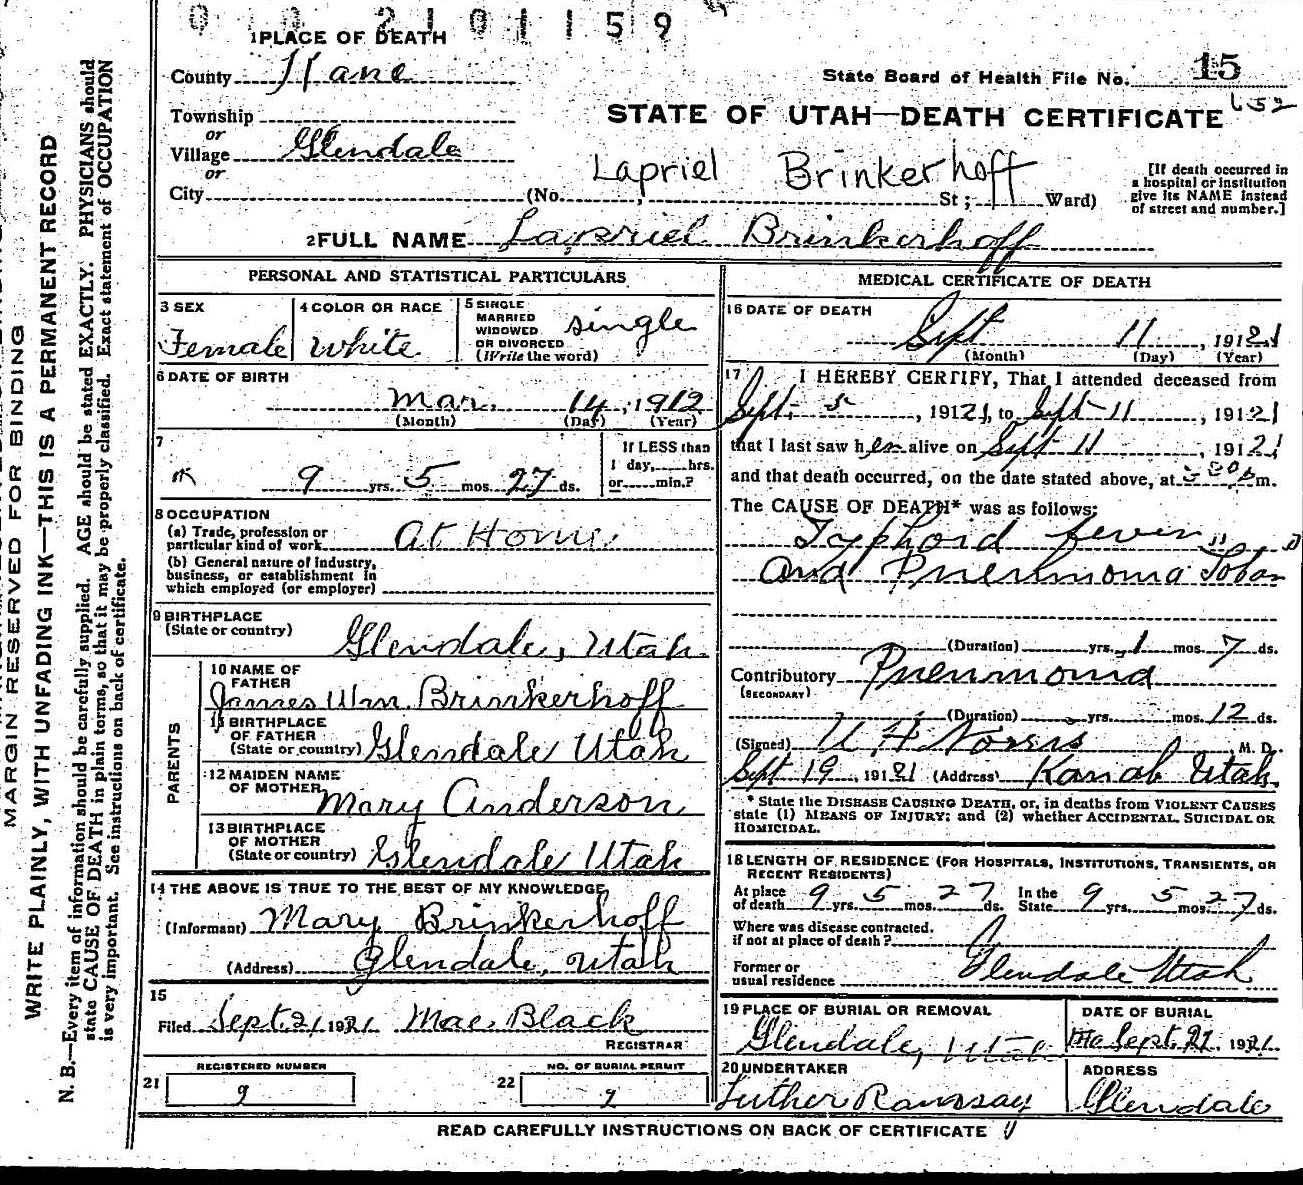 2101159
1 PLACE OF DEATH
County Kane
State Board of Health File No. 15
Township
STATE OF UTAH—DEATH CERTIFICATE 652
or
Village Glendale
or
Lapriel Brinkerhoff
City (No. St; Ward)
[If death occurred in
a hospital or institution
give its NAME instead
of street and number.]
2 FULL NAME Lapriel Brinkerhoff
PERSONAL AND STATISTICAL PARTICULARS
3 SEX
Female
4 COLOR OR RACE
White
5 SINGLE
MARRIED
WIDOWED
OR DIVORCED
(Write the word)
single
6 DATE OF BIRTH
Mar. 14, 1912
(Month) (Day) (Year)
7
9 yrs. 5 mos. 27 ds.
If LESS than
1 day, hrs.
or min.?
8 OCCUPATION
(a) Trade, profession or
particular kind of work At Home
(b) General nature of Industry,
business, or establishment in
which employed (or employer)
9 BIRTHPLACE
(State or country) Glendale, Utah
PARENTS
10 NAME OF
FATHER
James Wm. Brinkerhoff
11 BIRTHPLACE
OF FATHER
(State or country) Glendale Utah
12 MAIDEN NAME
OF MOTHER
Mary Anderson
13 BIRTHPLACE
OF MOTHER
(State or country) Glendale Utah
14 THE ABOVE IS TRUE TO THE BEST OF MY KNOWLEDGE
(Informant) Mary Brinkerhoff
(Address) Glendale, Utah
15
Filed Sept. 21 1921 Mae Black
REGISTRAR
REGISTERED NUMBER
21 9
NO. OF BURIAL PERMIT
22 9
MEDICAL CERTIFICATE OF DEATH
16 DATE OF DEATH
Sept 11, 1921
(Month) (Day) (Year)
17 I HEREBY CERTIFY, That I attended deceased from
Sept. 5, 19121, to Sept 11, 19121
that I last saw her alive on Sept 11, 19121
and that death occurred, on the date stated above, at p m.
The CAUSE OF DEATH* was as follows:
Typhoid fever
and Pneumonia Lobar
(Duration) yrs. 1 mos. 7 ds.
Contributory Pneumonia
(SECONDARY)
(Duration) yrs. mos. 12 ds.
(Signed) Norris, M. D.
Sept 19, 1921 (Address) Kanab Utah.
* State the DISEASE CAUSING DEATH, or, in deaths from VIOLENT CAUSES
state (1) MEANS OF INJURY; and (2) whether ACCIDENTAL, SUICIDAL OR
HOMICIDAL.
18 LENGTH OF RESIDENCE (FOR HOSPITALS, INSTITUTIONS, TRANSIENTS, OR
RECENT RESIDENTS)
At place
of death 9 yrs. 5 mos. 27 ds.
In the
State 9 yrs. 5 mos. 27 ds.
Where was disease contracted,
if not at place of death?
Former or
usual residence Glendale Utah
19 PLACE OF BURIAL OR REMOVAL
Glendale, Utah
DATE OF BURIAL
Sept. 1921
20 UNDERTAKER
Luther Ramsay
ADDRESS
Glendale
READ CAREFULLY INSTRUCTIONS ON BACK OF CERTIFICATE
MARGIN RESERVED FOR BINDING
WRITE PLAINLY, WITH UNFADING INK—THIS IS A PERMANENT RECORD
N. B.—Every item of information should be carefully supplied. AGE should be stated EXACTLY. PHYSICIANS should
state CAUSE OF DEATH in plain terms, so that it may be properly classified. Exact statement of OCCUPATION
is very important. See instructions on back of certificate.